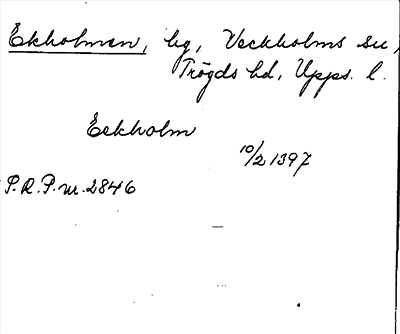 Ekholmen, hg, Veckholms sn,
Trögds hd, Upps. l.
Eekholm
10/2 1397
P.R.P. nr. 2846